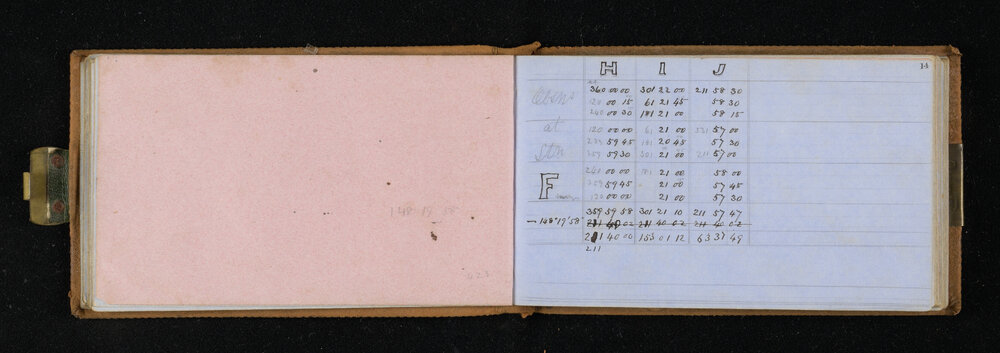 148 19 58
14
H I J
Obsns 360 00 00 301 22 00 211 58 30
120 00 15 61 21 45 58 30
240 00 30 181 21 00 58 15
at 120 00 00 61 21 00 331 57 00
239 59 45 181 20 45 57 30
Stn 359 59 30 301 21 00 211 57 00
F 241 00 00 181 21 00 58 00
359 59 45 21 00 57 45
120 00 00 21 00 57 30
359 59 58 301 21 10 211 57 47
- 148° 19' 58" 40 02 211 40 02
40 00 153 01 12 63 37 49
211